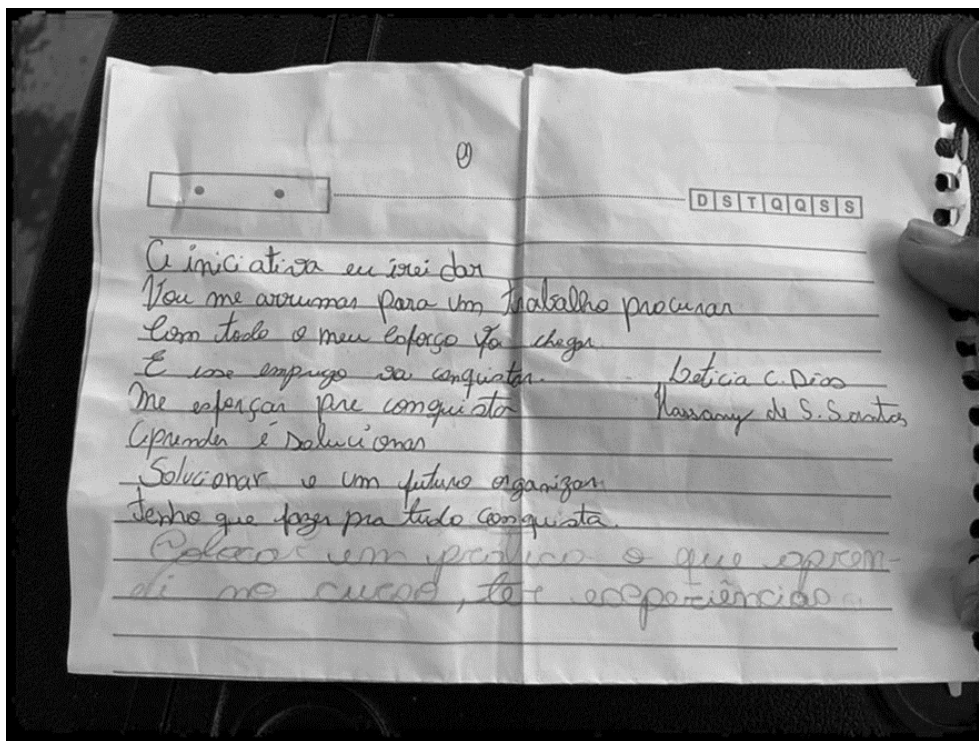 D S T Q Q S S
A iniciativa eu irei dar
Vou me arrumar para um trabalho procurar
Com todo o meu esforço vo chegar
E esse emprego vo conquistar. Leticia C. Dias
Me esforçar pre conquista de S. Santos
Aprender é solucionar
Solucionar e um futuro organizar
Tenho que fazer pra tudo conquista.
Colocar em prática o que apren-
di no curso, ter experiências.